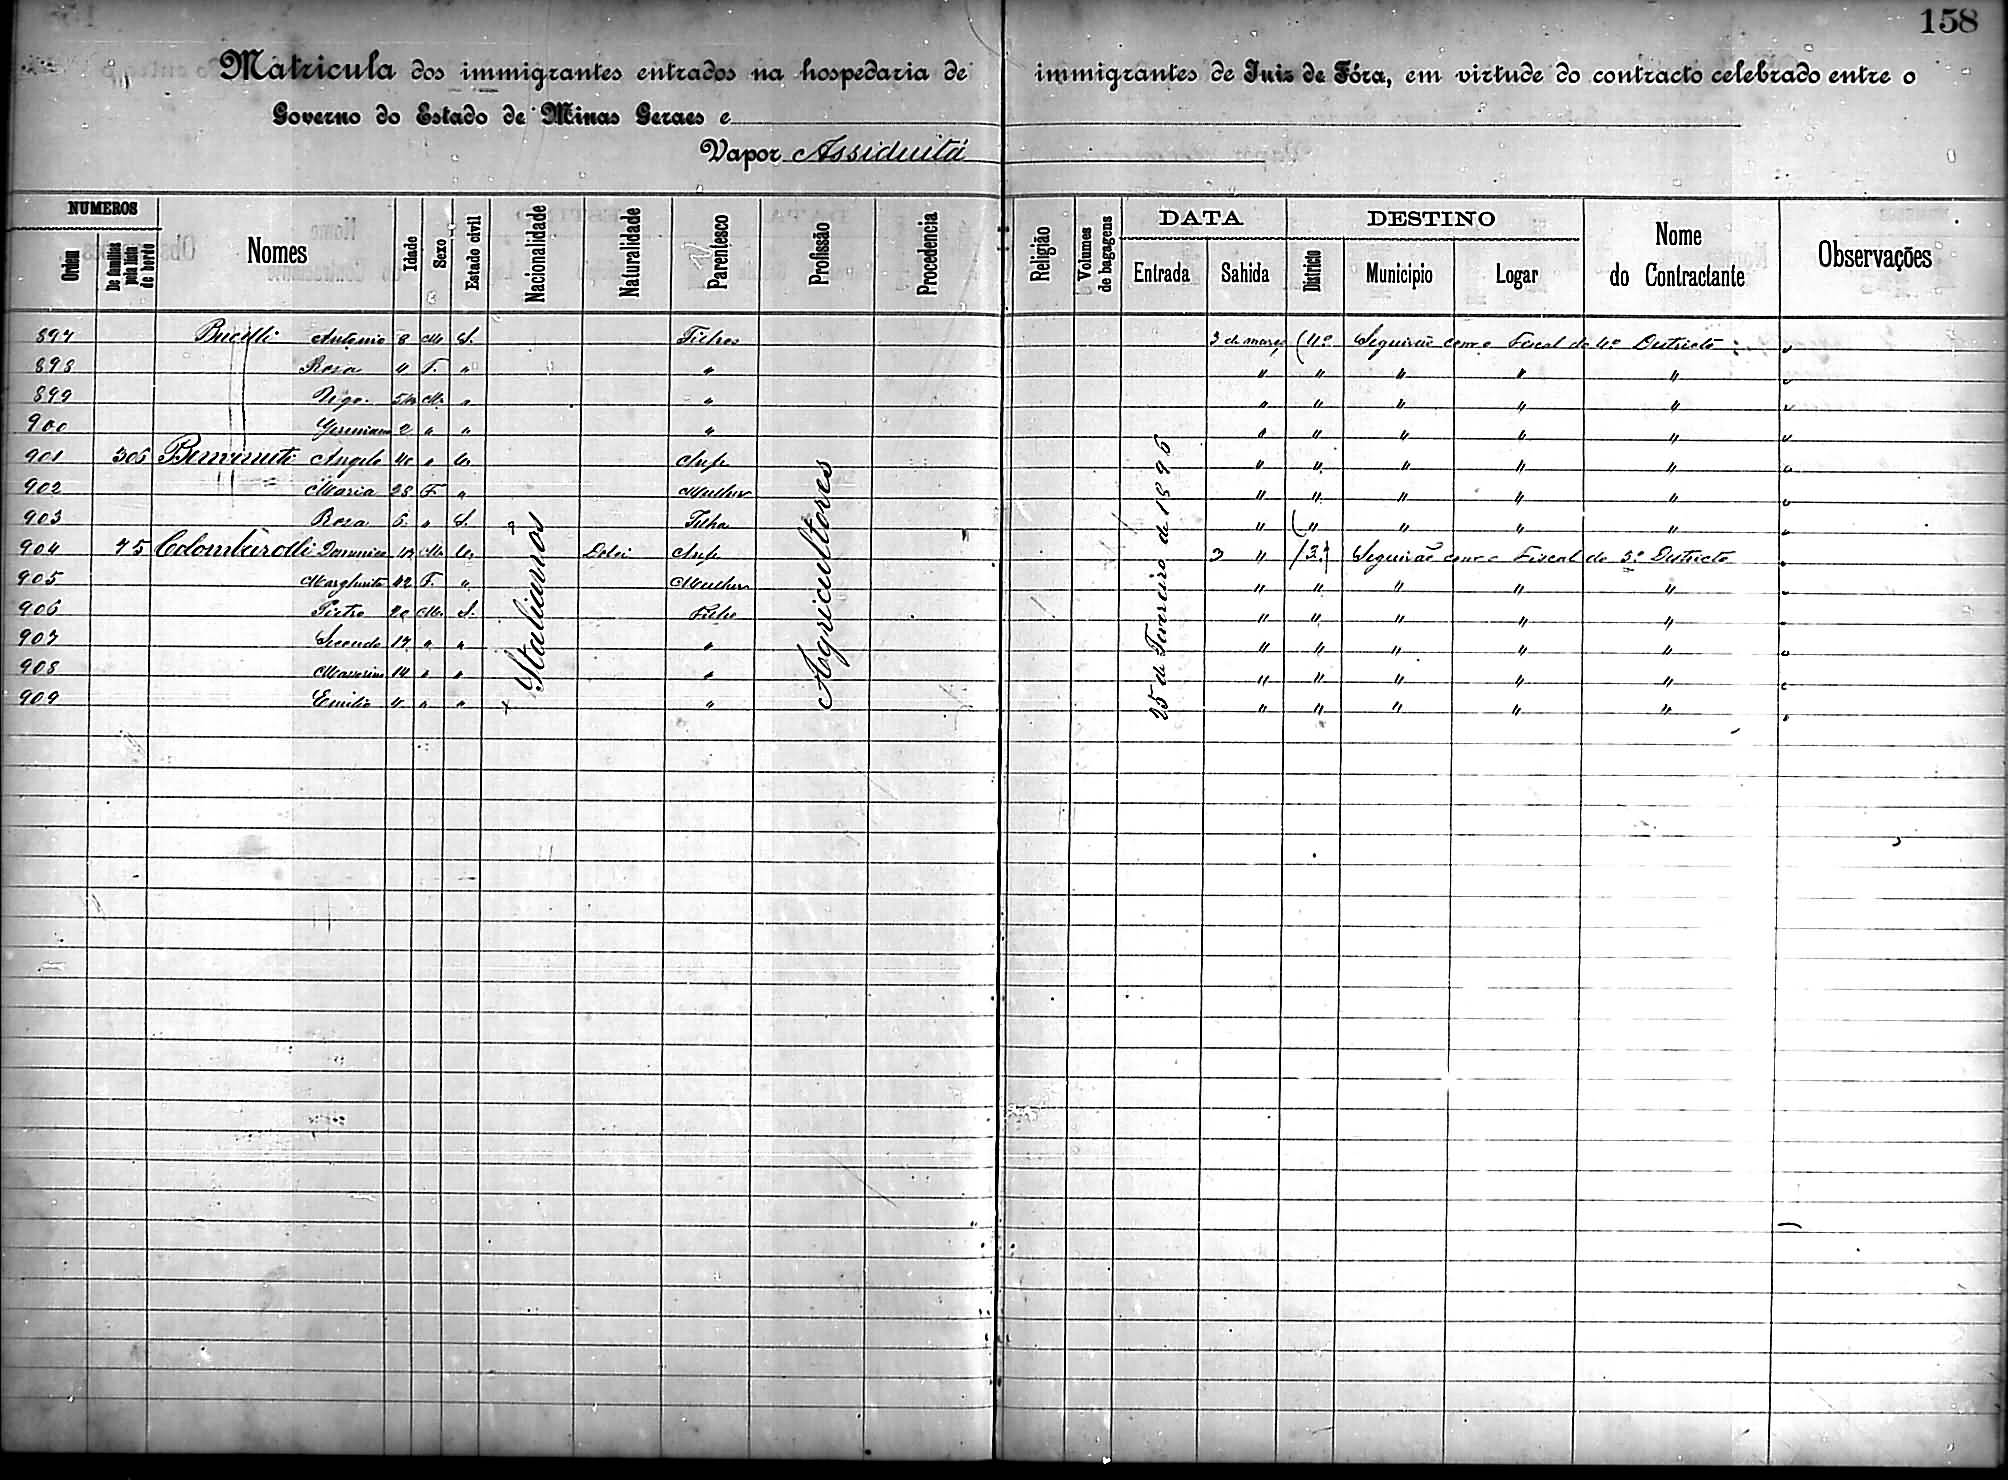 158
Matricula dos immigrantes entrados na hospedaria de immigrantes de Juiz de Fóra, em virtude do contracto celebrado entre o
Governo do Estado de Minas Geraes e
Vapor Assiduitá
NUMEROS
Ordem
De familias pela lista de bordo
Nomes
Idade
Sexo
Estado civil
Nacionalidade
Naturalidade
Parentesco
Profissão
Procedencia
Religião
Volumes de bagagens
DATA
Entrada
Sahida
DESTINO
Districto
Municipio
Logar
Nome do Contractante
Observações
897 Antonio 8 M. S. 3 de março 4º Seguirão com o Fiscal do 4º Districto
898 Rosa F. " " " " " " "
899 M. " " " " " " "
900 2 " " " " " " " "
901 305 Angelo " " " " " "
902 Maria 28 F. " Mulher " " " " "
903 Rosa 6 " S. Filha " " " " "
904 75 M. 3 " 3º Seguirão com o Fiscal do 3º Districto
905 Margherita 42 F. " Mulher " " " " "
906 Pietro 20 M. S. Filho " " " " "
907 Secondo 17 " " " " " " " "
908 14 " " " " " " " "
909 Emilio " " " " " " " "
Italianos
Agricultores
25 de Fevereiro de 1896